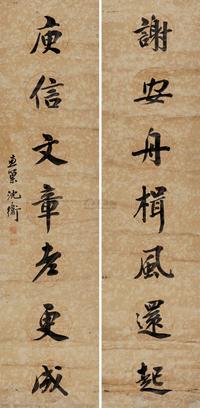 謝安舟楫風還起
庾信文章老更成
直巢沈衛